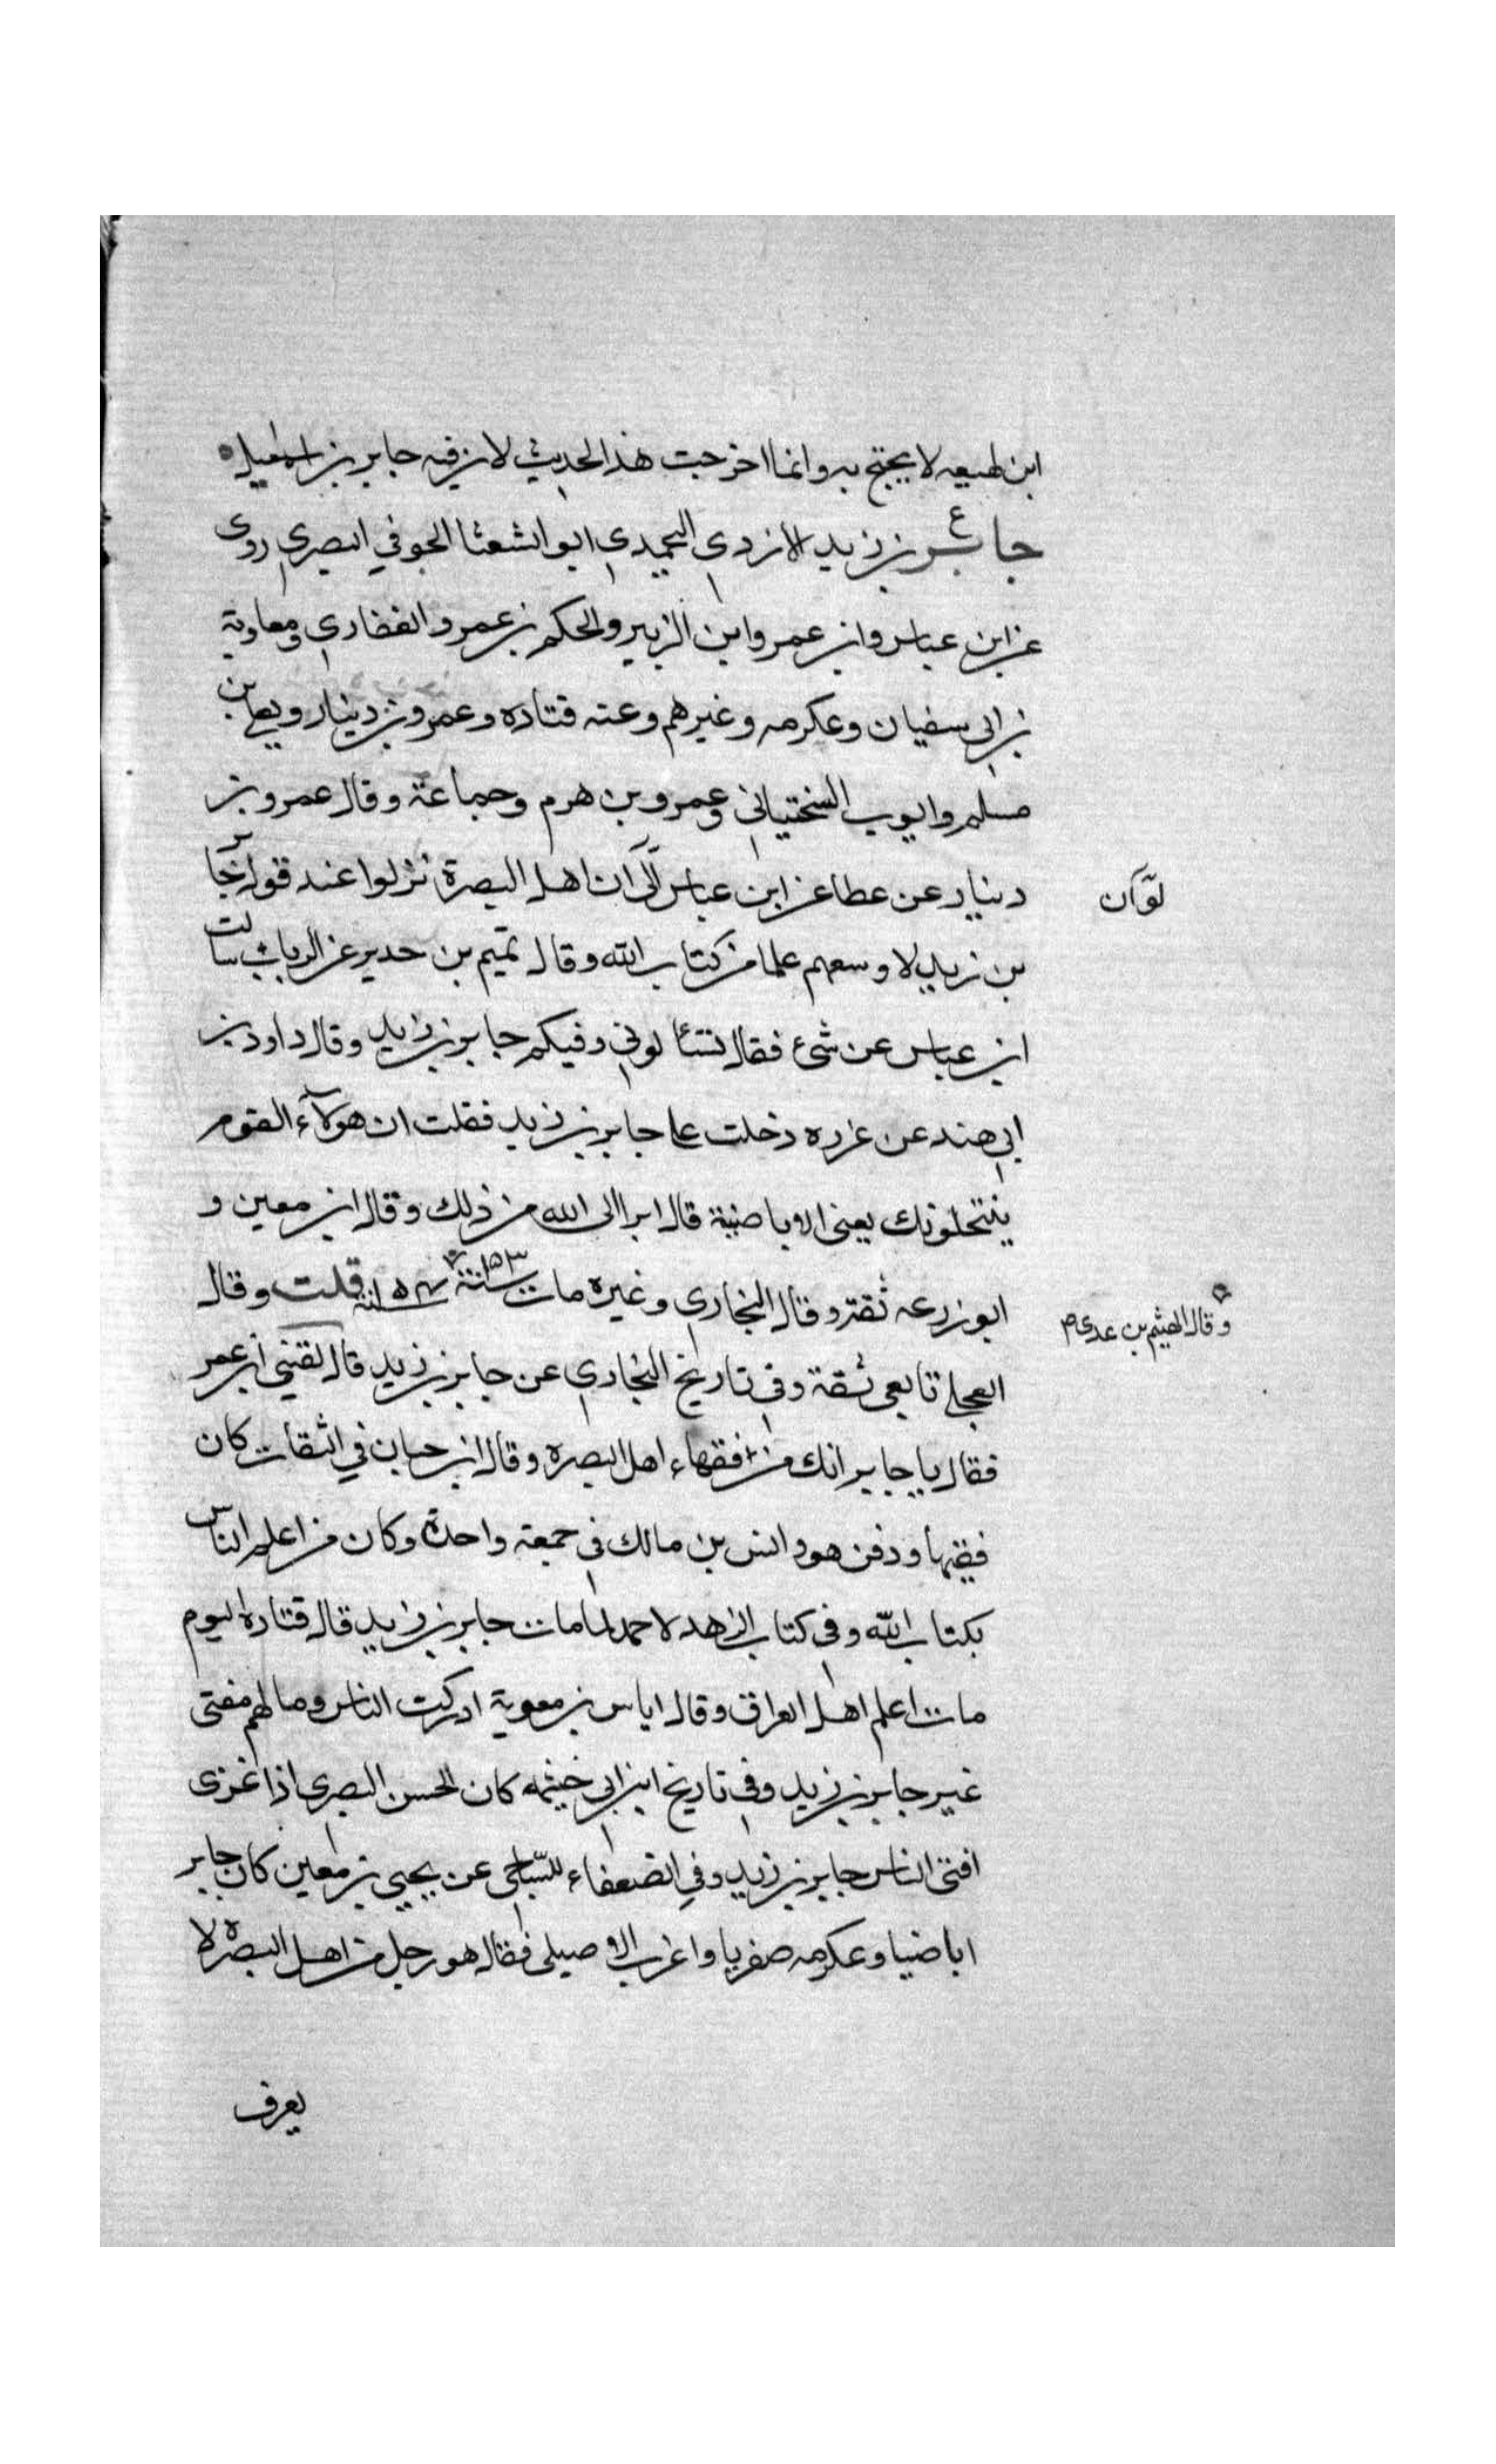 ابن لهيعه لا يحتج به وانما اخرجت هذا الحديث لان فيه جابر بن اسمعيل
ع
جابر بن زيد الازدي اليحمدي ابو الشعثا الجوفي البصري روى
عن ابن عباس وابن عمر وابن الزبير والحكم بن عمرو الغفاري ومعاوية
بن ابي سفيان وعكرمه وغيرهم وعنه قتاده وعمرو بن دينار ويعلى بن
مسلم وايوب السختياني وعمرو بن هرم وجماعة وقال عمرو بن
دينار عن عطا عن ابن عباس ان اهل البصرة نزلوا عند قول جابر
لو ان
بن زيد لاوسعهم علما من كتاب الله وقال تميم بن حدير عن الرباب سالت
ابن عباس عن شئ فقال تسئالوني وفيكم جابر بن زيد وقال داود بن
ابي هند عن عزره دخلت على جابر بن زيد فقلت ان هولآء القوم
ينتحلونك يعني الاباضية قال ابرا الى الله من ذلك وقال ابن معين و
ابوزرعه ثقة وقال البخاري وغيره مات سنة ٩٣ سنة قلت وقال
وقال الهيثم بن عدي
العجلي تابعى ثقة وفي تاريخ البخاري عن جابر بن زيد قال لقيني ابن عمر
فقال يا جابر انك من فقهاء اهل البصره وقال ابن حبان في الثقات كان
فقيها ودفن هو وانس بن مالك في جمعة واحدة وكان من اعلم الناس
بكتاب الله وفي كتاب الزهد لاحمد لما مات جابر بن زيد قال قتاده اليوم
مات اعلم اهل العراق وقال اياس بن معوية ادركت الناس وما لهم مفتى
غير جابر بن زيد وفي تاريخ ابن ابي خيثمه كان الحسن البصري اذا غزى
افتى الناس جابر بن زيد وفي الضعفاء للساجى عن يحيى بن معين كان جابر
اباضيا وعكرمه صفريا واغرب الاصيلي فقال هو رجل من اهل البصرة لا
يعرف